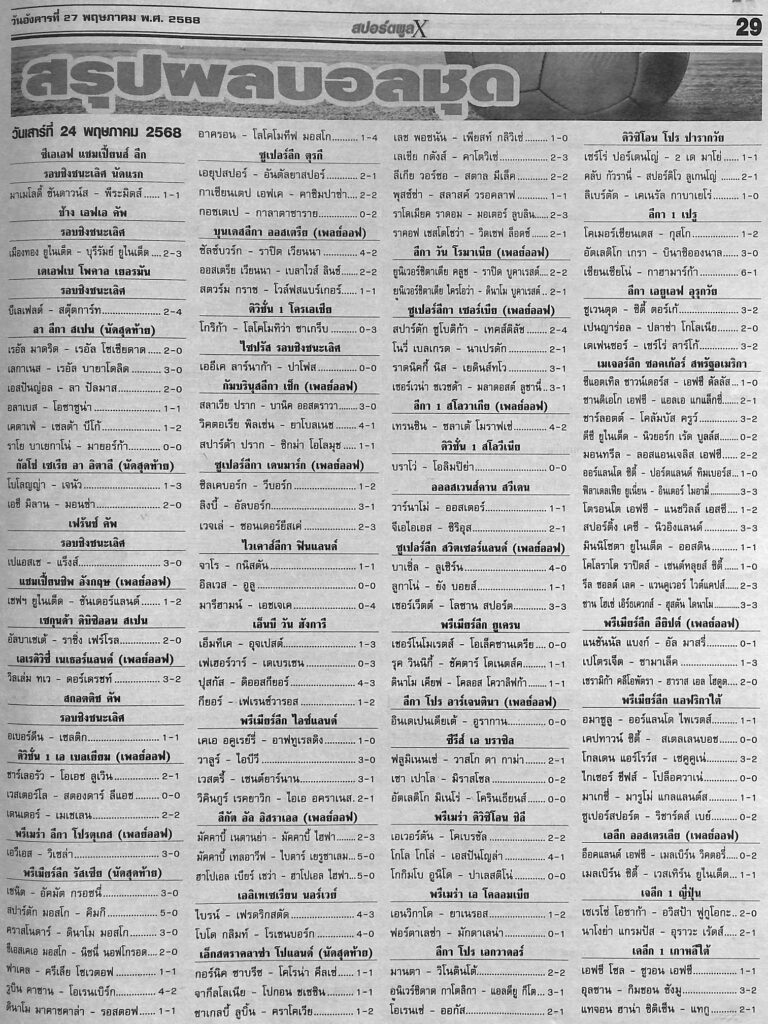 วันอังคารที่ 27 พฤษภาคม พ.ศ. 2568
สปอร์ตพูลX
29
สรุปผลบอลชุด
วันเสาร์ที่ 24 พฤษภาคม 2568
ซีเอเอฟ แชมเปี้ยนส์ ลีก
รอบชิงชนะเลิศ นัดแรก
มาเมโลดี้ ซันดาวน์ส - พีระมิดส์......1-1
ช้าง เอฟเอ คัพ
รอบชิงชนะเลิศ
เมืองทอง ยูไนเต็ด - บุรีรัมย์ ยูไนเต็ด.....2-3
เดเอฟเบ โพคาล เยอรมัน
รอบชิงชนะเลิศ
บีเลเฟลด์ - สตุ๊ตการ์ท.....2-4
ลา ลีกา สเปน (นัดสุดท้าย)
เรอัล มาดริด - เรอัล โซเซียดาด.....2-0
เลกาเนส - เรอัล บายาโดลิด.....3-0
เอสปันญ่อล - ลา ปัลมาส.....2-0
อลาเบส - โอซาซูน่า.....1-1
เคตาเฟ่ - เซลต้า บีโก้.....1-2
ราโย บาเยกาโน่ - มายอร์ก้า.....0-0
กัลโช่ เซเรีย อา อิตาลี (นัดสุดท้าย)
โบโลญญ่า - เจนัว.....1-3
เอซี มิลาน - มอนซ่า.....2-0
เฟร้นช์ คัพ
รอบชิงชนะเลิศ
เปแอสเช - แร็งส์.....3-0
แชมเปี้ยนชิพ อังกฤษ (เพลย์ออฟ)
เชฟฯ ยูไนเต็ด - ซันเดอร์แลนด์.....1-2
เซกุนด้า ดิบิซิออน สเปน
อัลบาเซเต้ - ราซิ่ง เฟร์โรล.....2-0
เอเรดิวิซี่ เนเธอร์แลนด์ (เพลย์ออฟ)
วิลเล่ม ทเว - ดอร์เดรชท์.....3-2
สกอตติช คัพ
รอบชิงชนะเลิศ
อเบอร์ดีน - เซลติก.....1-1
ดิวิชั่น 1 เอ เบลเยียม (เพลย์ออฟ)
ชาร์เลอรัว - โอเอช ลูเวิน.....2-1
เวสเตอร์โล - สตองดาร์ ลีแอช.....0-0
เดนเดอร์ - เมเชเลน.....2-2
พรีเมร่า ลีกา โปรตุเกส (เพลย์ออฟ)
เอวีเอส - วิเซล่า.....3-0
พรีเมียร์ลีก รัสเซีย (นัดสุดท้าย)
เซนิต - อัคมัต กรอซนี่.....3-0
สปาร์ตัก มอสโก - คิมกี.....5-0
คราสโนดาร์ - ดินาโม มอสโก.....3-0
ซีเอสเคเอ มอสโก - นิซนี่ นอฟโกรอด.....2-0
ฟาเคล - ครีเลีย โซเวตอฟ.....1-1
รูบิน คาซาน - โอเรนเบิร์ก.....4-2
ดินาโม มาคาชคาล่า - รอสตอฟ.....1-1
อาครอน - โลโคโมทีฟ มอสโก.....1-4
ซูเปอร์ลีก ตุรกี
เอยุปสปอร์ - อันตัลยาสปอร์.....2-1
กาเซียนเตป เอฟเค - คาซิมปาซ่า.....2-2
กอซเตเป - กาลาตาซาราย.....0-2
บุนเดสลีกา ออสเตรีย (เพลย์ออฟ)
ซัลซ์บวร์ก - ราปิด เวียนนา.....4-2
ออสเตรีย เวียนนา - เบลาไวส์ ลินซ์.....2-2
สตวร์ม กราซ - โวล์ฟสแบร์เกอร์.....1-1
ดิวิชั่น 1 โครเอเชีย
โกริก้า - โลโคโมทิว่า ซาเกร็บ.....0-3
ไซปรัส รอบชิงชนะเลิศ
เออีเค ลาร์นาก้า - ปาโฟส.....0-0
กัมบรินุสลีกา เช็ก (เพลย์ออฟ)
สลาเวีย ปราก - บานิค ออสตราวา.....3-0
วิคตอเรีย พิลเซ่น - ยาโบลเนซ.....4-1
สปาร์ต้า ปราก - ซิกม่า โอโลมุช.....1-1
ซูเปอร์ลีกา เดนมาร์ก (เพลย์ออฟ)
ซิลเคบอร์ก - วีบอร์ก.....1-2
ลิงบี้ - อัลบอร์ก.....3-1
เวจเล่ - ซอนเดอร์ยีสเค่.....2-3
ไวเคาส์ลีกา ฟินแลนด์
จาโร - กนิสตัน.....1-1
อิลเวส - อูลู.....0-0
มารีฮามน์ - เอชเจเค.....0-4
เอ็นบี วัน ฮังการี
เอ็มทีเค - อุจเปสต์.....1-3
เฟเฮอร์วาร์ - เดเบรเซน.....0-3
ปุสกัส - ดิออสกียอร์.....4-3
กียอร์ - เฟเรนช์วารอส.....1-2
พรีเมียร์ลีก ไอซ์แลนด์
เคเอ อคูเรย์รี่ - อาฟทูเรลดิง.....1-0
วาลูร์ - ไอบีวี.....3-0
เวสตรี้ - เซนต์ยาร์นาน.....3-1
วิคินกูร์ เรคยาวิก - ไอเอ อคราเนส.....2-1
ลีกัต อัล อิสราเอล (เพลย์ออฟ)
มัคคาบี้ เนตานย่า - มัคคาบี้ ไฮฟา.....2-3
มัคคาบี้ เทลอาวีฟ - ไบตาร์ เยรูซาเลม.....5-0
ฮาโปเอล เบียร์ เชว่า - ฮาโปเอล ไฮฟา.....5-0
เอลิทเซเรียน นอร์เวย์
ไบรน์ - เฟรดริกสตัด.....4-3
โบโด กลิมท์ - โรเซนบอร์ก.....4-0
เอ็กสตราคลาซ่า โปแลนด์ (นัดสุดท้าย)
กอร์นิค ซาบรีซ - โคโรน่า คีลเซ่.....1-1
จากีลโลเนีย - โปกอน ชเชซิน.....1-1
ซาเกลบี้ ลูบิ้น - คราโคเวีย.....1-2
เลช พอซนัน - เพียสท์ กลิวิเซ่.....1-0
เลเชีย กดังส์ - คาโตวิเซ่.....2-3
ลีเกีย วอร์ซอ - สตาล มีเล็ค.....2-2
พุสซ์ซ่า - สลาสค์ วรอคลาฟ.....1-1
ราโดเมียค ราดอม - มอเตอร์ ลูบลิน.....2-3
ราคอฟ เชสโตโชว่า - วิดเซฟ ล็อดซ์.....2-1
ลีกา วัน โรมาเนีย (เพลย์ออฟ)
ยูนิเวร์ซิตาเตีย คลูช - ราปิด บูคาเรสต์.....2-2
ยูนิเวร์ซิตาเตีย ไครโอว่า - ดินาโม บูคาเรสต์.....2-1
ซูเปอร์ลีกา เซอร์เบีย (เพลย์ออฟ)
สปาร์ตัก ซูโบติก้า - เทคส์ติลัช.....2-4
โนวี่ เบลเกรด - นาเปรดัก.....2-1
ราดนิคกี้ นิส - เยดินส์ทโว.....3-1
เซอร์เวน่า ซเวซด้า - มลาดอสต์ ลูซานี่.....3-1
ลีกา 1 สโลวาเกีย (เพลย์ออฟ)
เทรนซิน - ซลาเต้ โมราฟเช่.....4-2
ดิวิชั่น 1 สโลวีเนีย
บราโว่ - โอลิมปิย่า.....0-0
ออลสเวนส์คาน สวีเดน
วาร์นาโม่ - ออสเตอร์.....1-1
จีเอไอเอส - ซิริอุส.....2-1
ซูเปอร์ลีก สวิตเซอร์แลนด์ (เพลย์ออฟ)
บาเซิล - ลูเซิร์น.....4-0
ลูกาโน่ - ยัง บอยส์.....1-1
เซอร์เว็ตต์ - โลซาน สปอร์ต.....3-3
พรีเมียร์ลีก ยูเครน
เชอร์โนโมเรตส์ - โอเล็คซานเดรีย.....0-0
รุค วินนิกี้ - ชัคตาร์ โดเนตส์ค.....1-1
ดินาโม เคียฟ - โคลอส โควาลิฟก้า.....1-1
ลีกา โปร อาร์เจนตินา (เพลย์ออฟ)
อินเดเปนเดียเต้ - อูรากาน.....0-0
ซีรีส์ เอ บราซิล
ฟลูมิเนนเซ่ - วาสโก ดา กาม่า.....2-1
เซา เปาโล - มิราสโซล.....0-2
อัตเลติโก มิเนโร่ - โครินเธียนส์.....0-0
พรีเมร่า ดิวิซิโอน ชิลี
เอเวอร์ตัน - โคเบรซัล.....2-2
โกโล โกโล่ - เอสปันโญล่า.....4-1
โกกิมโบ อูนิโด - ปาเลสติโน่.....0-0
พรีเมร่า เอ โคลอมเบีย
เอนวิกาโด - ยาเนรอส.....1-2
ฟอร์ตาเลซ่า - มักดาเลน่า.....0-1
ลีกา โปร เอกวาดอร์
มานตา - วินดินโด้.....2-2
อูนิเวร์ซิดาด กาโตลิกา - แอลดียู กีโต.....3-1
โอเรนเซ่ - ออกัส.....2-1
ดิวิซิโอน โปร ปารากวัย
เซร์โร่ ปอร์เตนโญ่ - 2 เด มาโย่.....1-1
คลับ กัวรานี่ - สปอร์ติโว ลูเกนโญ่.....2-1
ลิเบร์ตัด - เคเนรัล กาบาเยโร่.....1-0
ลีกา 1 เปรู
โคเมอร์เซียนเตส - กุสโก.....1-2
อัตเลติโก เกรา - บินาซิอองนาล.....3-0
เซียนเซียโน่ - กาฮามาร์ก้า.....6-1
ลีกา เอยูเอฟ อุรุกวัย
ซูเวนตุด - ซิตี้ ตอร์เก้.....3-2
เปนญาร่อล - ปลาซ่า โกโลเนีย.....2-0
เดเฟนซอร์ - เซร์โร่ ลาร์โก้.....3-2
เมเจอร์ลีก ซอคเก้อร์ สหรัฐอเมริกา
ซีแอตเทิล ซาวน์เดอร์ส - เอฟซี ดัลลัส.....1-0
ซานดิเอโก เอฟซี - แอลเอ แกแล็กซี่.....2-1
ชาร์ลอตต์ - โคลัมบัส ครูว์.....3-2
ดีซี ยูไนเต็ด - นิวยอร์ก เร้ด บูลล์ส.....0-2
มอนทรีล - ลอสแอนเจลิส เอฟซี.....2-2
ออร์แลนโด ซิตี้ - ปอร์ตแลนด์ ทิมเบอร์ส.....1-0
ฟิลาเดลเฟีย ยูเนี่ยน - อินเตอร์ ไมอามี่.....3-3
โตรอนโต เอฟซี - แนชวิลล์ เอสซี.....1-2
สปอร์ติ้ง เคซี - นิวอิงแลนด์.....3-3
มินนิโซตา ยูไนเต็ด - ออสติน.....1-1
โคโลราโด ราปิดส์ - เซนต์หลุยส์ ซิตี้.....1-0
รีล ซอลต์ เลค - แวนคูเวอร์ ไวต์แคปส์.....2-3
ซาน โฮเซ่ เอิร์ธเควกส์ - ฮุสตัน ไดนาโม.....3-3
พรีเมียร์ลีก อียิปต์ (เพลย์ออฟ)
แนชันนัล แบงก์ - อัล มาสรี่.....0-1
เปโตรเจ็ต - ซามาเล็ค.....1-3
เซรามิก้า คลีโอพัตรา - ฮาราส เอล โฮดูด.....2-0
พรีเมียร์ลีก แอฟริกาใต้
อมาซูลู - ออร์แลนโด ไพเรตส์.....1-1
เคปทาวน์ ซิตี้ - สเตลเลนบอช.....0-0
โกลเดน แอร์โรว์ส - เซคูคูเน่.....3-2
ไกเซอร์ ชีฟส์ - โปล็อควาเน่.....0-0
มาเกซี่ - มารูโม่ แกลแลนต์ส.....1-1
ซูเปอร์สปอร์ต - ริชาร์ดส์ เบย์.....0-2
เอลีก ออสเตรเลีย (เพลย์ออฟ)
อ็อคแลนด์ เอฟซี - เมลเบิร์น วิคตอรี่.....0-2
เมลเบิร์น ซิตี้ - เวสเทิร์น ยูไนเต็ด.....1-1
เจลีก 1 ญี่ปุ่น
เซเรโซ่ โอซาก้า - อวิสป้า ฟูกูโอกะ.....2-0
นาโงย่า แกรมปัส - อุราวะ เร้ดส์.....2-1
เคลีก 1 เกาหลีใต้
เอฟซี โซล - ซูวอน เอฟซี.....1-1
อุลซาน - กิมชอน ซังมู.....3-2
แทจอน ฮาน่า ซิติเซ็น - แทกู.....2-1